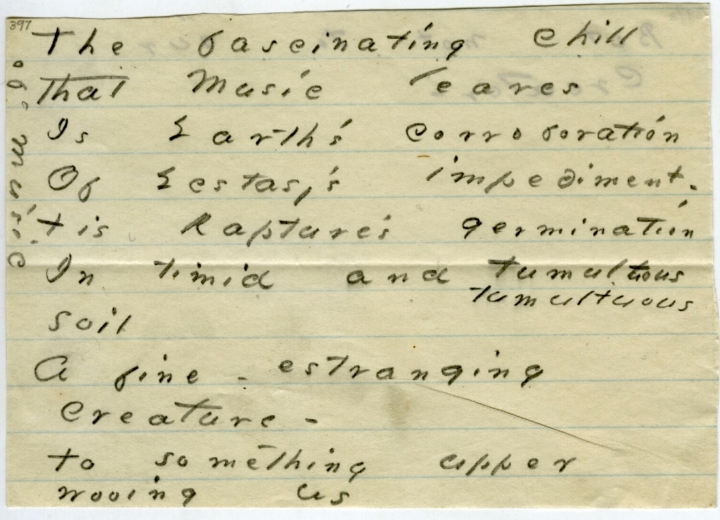 397
The fascinating chill
That Music leaves
Is Earth's corroboration
Of Ecstasy's impediment.
tis Rapture's germination
In timid and tumultous
tumultuous
soil
A fine - estranging
creature -
to something upper
wooing us
music